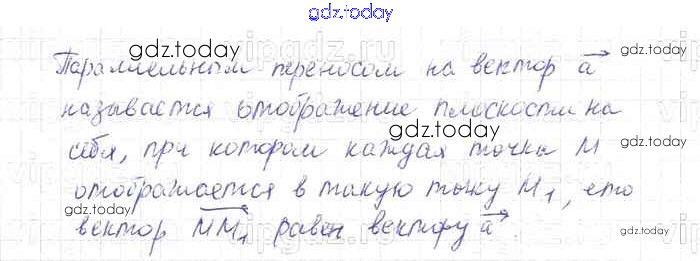 gdz.today
Параллельным переносом на вектор a⃗
называется отображение плоскости на
себя, при котором каждая точка M
отображается в такую точку M₁, что
вектор MM₁ равен вектору a⃗.
gdz.today
gdz.today
gdz.today
gdz.today
gdz.today
gdz.today